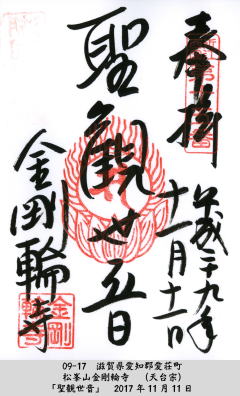 奉拝
平成二十九年
十一月十一日
聖観世音
金剛輪寺
金剛
輪寺
09-17 滋賀県愛知郡愛荘町
松峯山金剛輪寺 (天台宗)
「聖観世音」 2017年11月11日